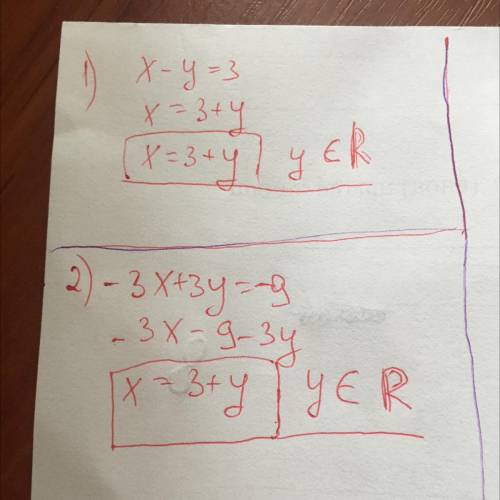 1) x - y = 3
x = 3 + y
x = 3 + y y ∈ ℝ
2) - 3x + 3y = -9
- 3x - 9 - 3y
x = 3 + y y ∈ ℝ